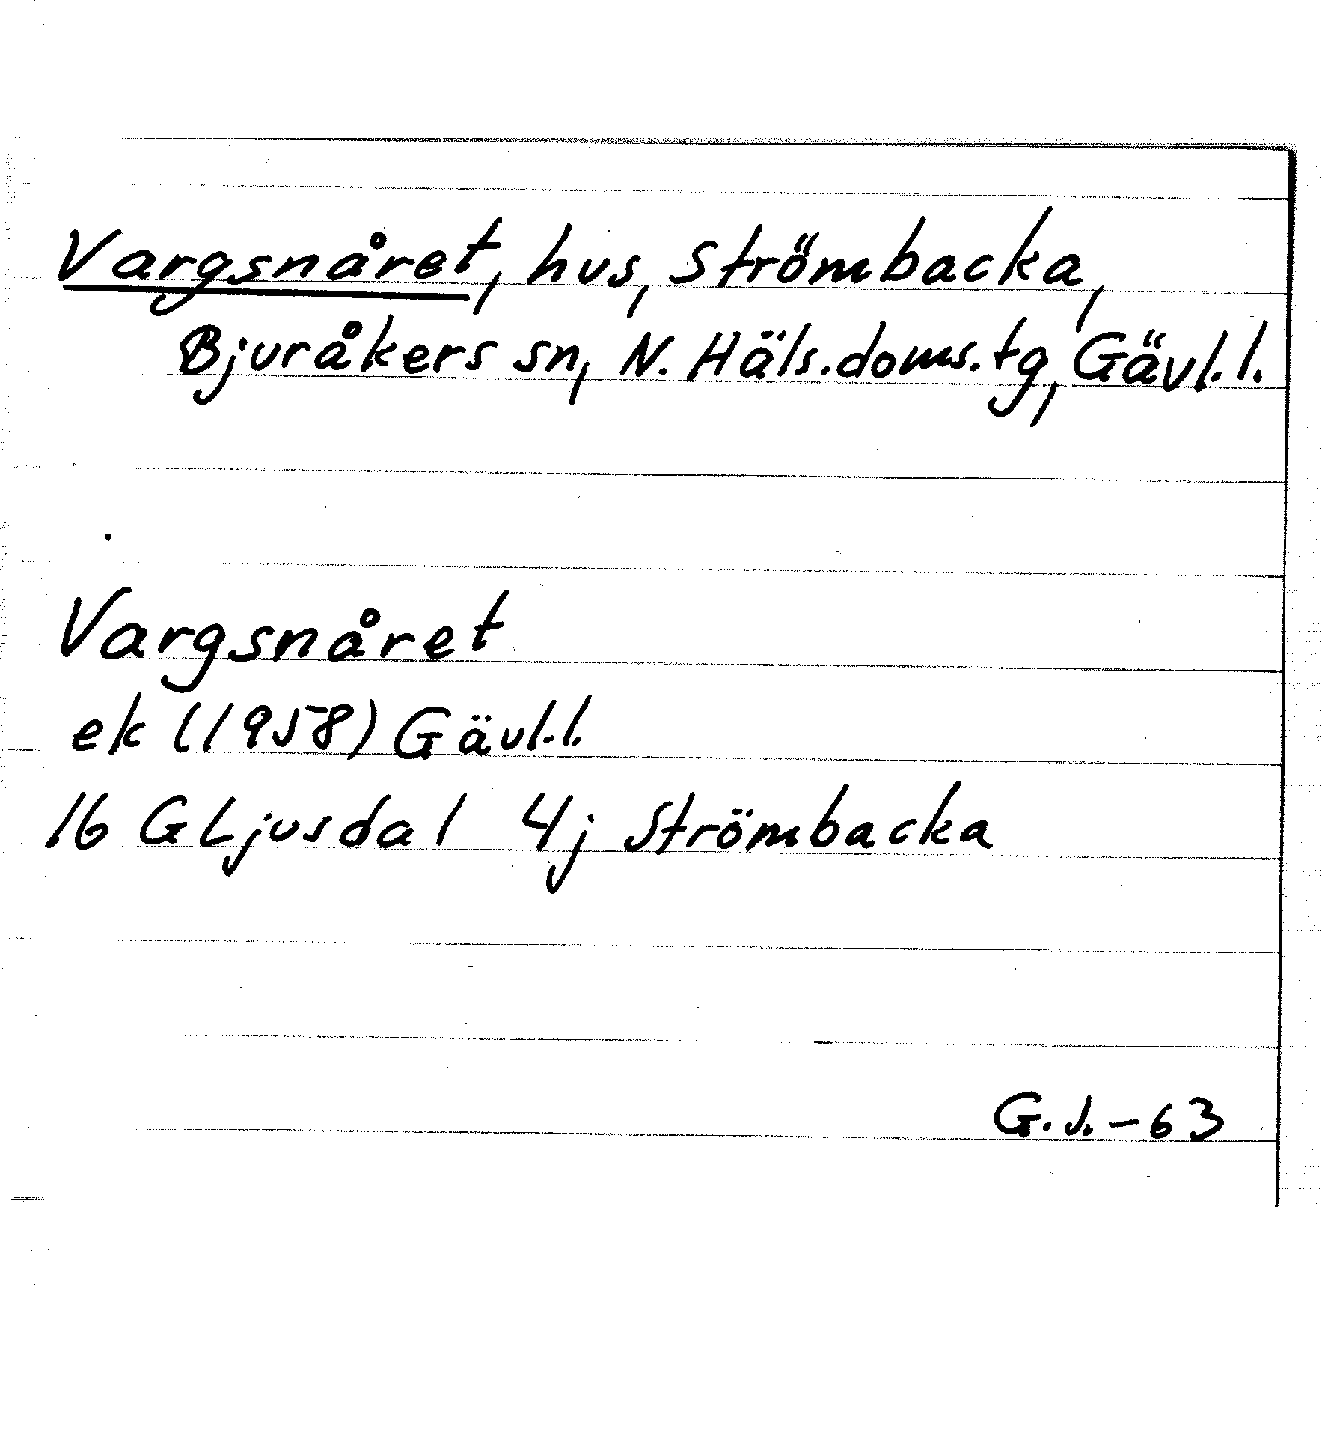 Vargsnåret, hus, Strömbacka,
Bjuråkers sn, N. Häls.doms.tg, Gävl.l.
Vargsnåret
ek (1958) Gävl.l.
16 G Ljusdal 4j Strömbacka
G.J.-63